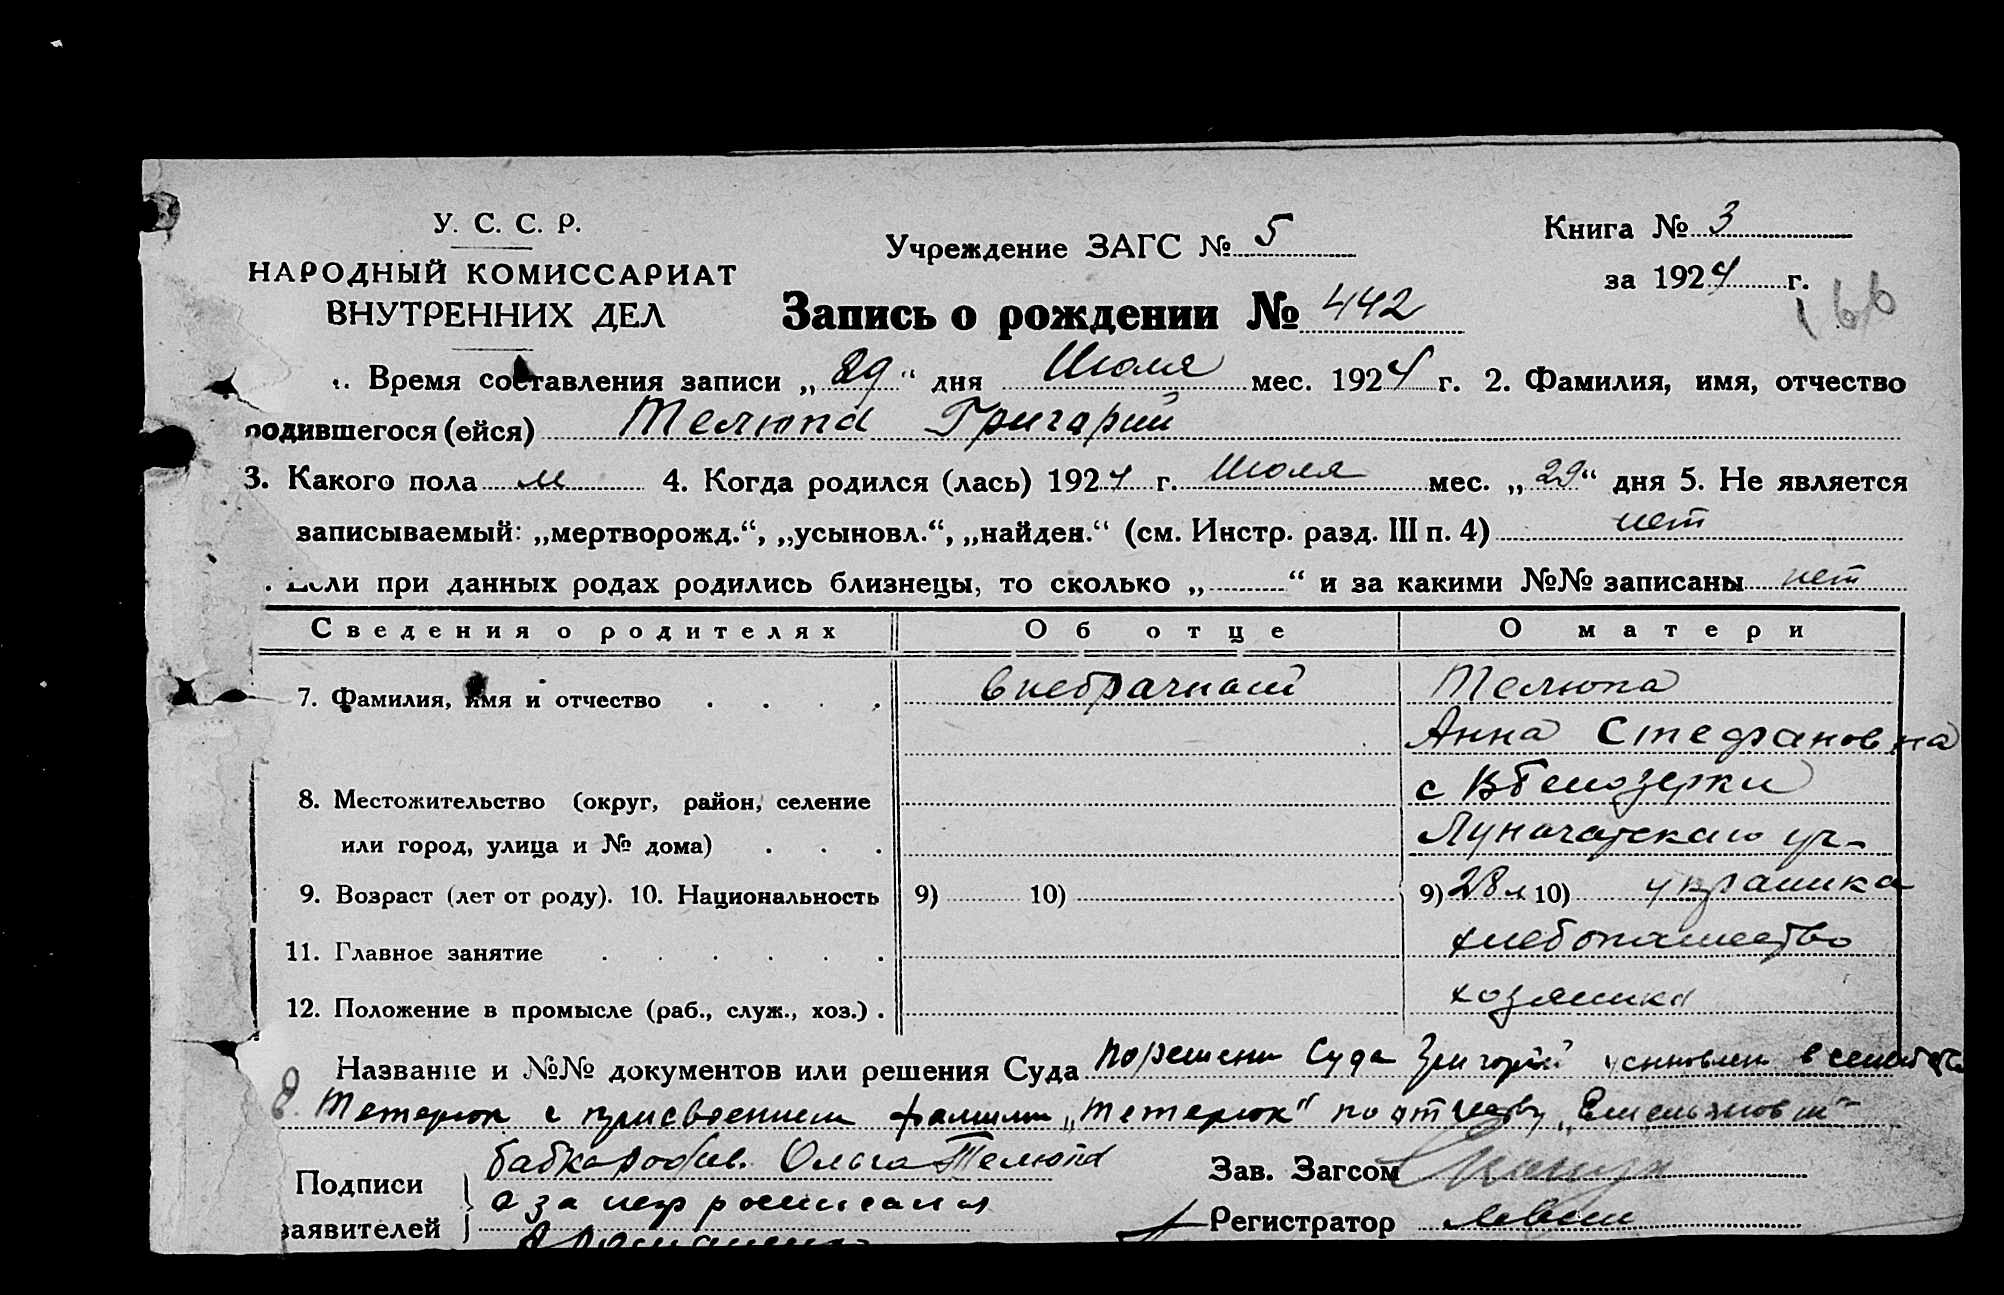 У. С. С. Р.
НАРОДНЫЙ КОМИССАРИАТ
ВНУТРЕННИХ ДЕЛ
Учреждение ЗАГС № 5
Книга № 3
за 1924 г.
166
Запись о рождении № 442
Время составления записи „29“ дня Июля мес. 1924 г. 2. Фамилия, имя, отчество
родившегося (ейся) Телюпа Григарий
3. Какого пола м 4. Когда родился (лась) 1924 г. Июля мес. „29“ дня 5. Не является
записываемый: „мертворожд.“, „усыновл.“, „найден.“ (см. Инстр. разд. III п. 4) нет
Если при данных родах родились близнецы, то сколько „ “ и за какими №№ записаны нет
Сведения о родителях Об отце О матери
7. Фамилия, имя и отчество . . . . внебрачный Телюпа
Анна Стефановна
8. Местожительство (округ, район, селение с В Белозерки
или город, улица и № дома) . . .
9. Возраст (лет от роду). 10. Национальность 9) 10) 9) 28 л 10) украинка
11. Главное занятие . . . . . . хлебопашество
12. Положение в промысле (раб., служ., хоз.) . хозяйка
Название и №№ документов или решения Суда По решени Суда Григорий усыновлен в
Тетерюк с присвоением фамилии „Тетерюк“ по отчеству „Емельянович“
Подписи бабка Ольга Телюпа
заявителей а за
Зав. Загсом
Регистратор